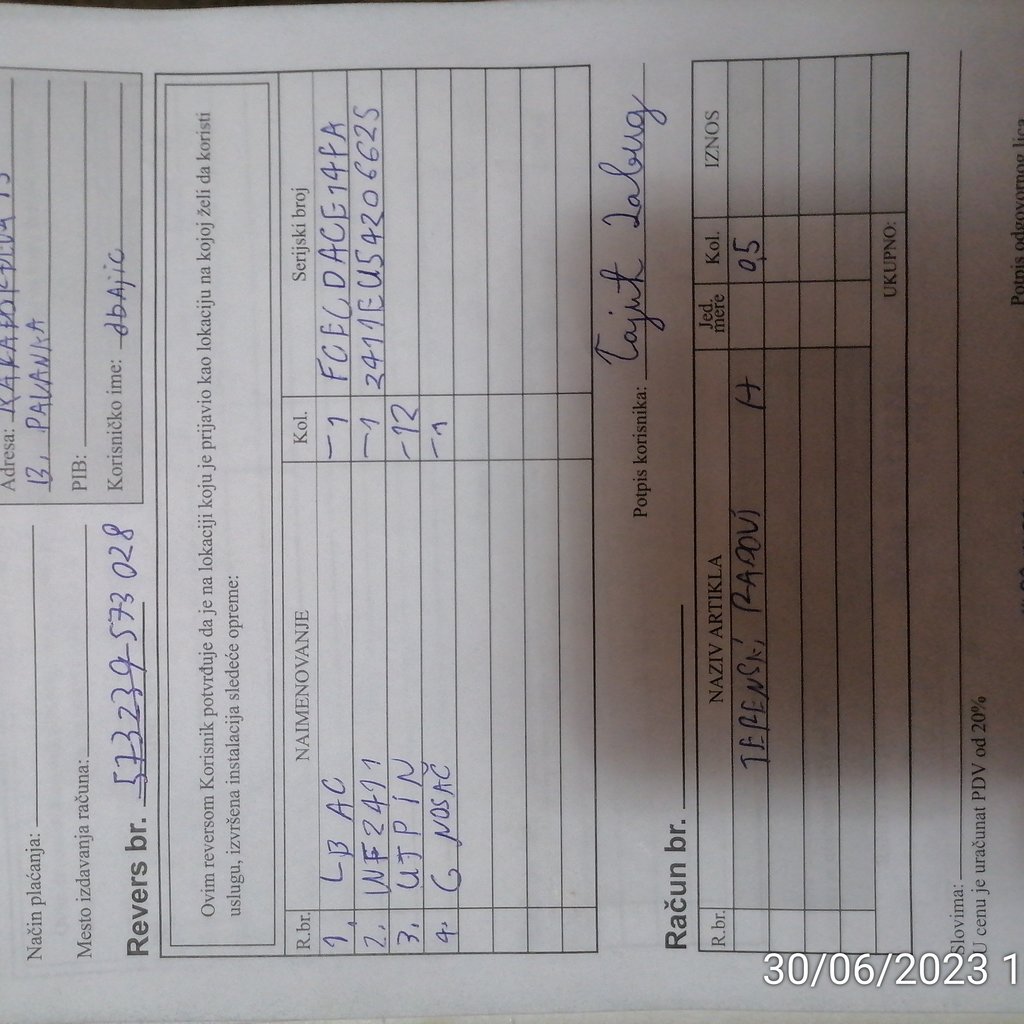 Adresa:
B. PALANKA
PIB:
Korisničko ime: dbAjic
Način plaćanja:
Mesto izdavanja računa:
Revers br. 573239-573028
Ovim reversom Korisnik potvrđuje da je na lokaciji koju je prijavio kao lokaciju na kojoj želi da koristi
uslugu, izvršena instalacija sledeće opreme:
R.br. NAIMENOVANJE Kol. Serijski broj
1. LB AC -1 FCECDACE14FA
2. WF2411 -1 2411EU5420 6625
3. UTP IN -12
4. G NOSAČ -1
Potpis korisnika:
Račun br.
R.br. NAZIV ARTIKLA Jed. mere Kol. IZNOS
TERENSKI RADOVI H 0,5
UKUPNO:
Slovima:
U cenu je uračunat PDV od 20%
Potpis odgovornog lica
30/06/2023 1